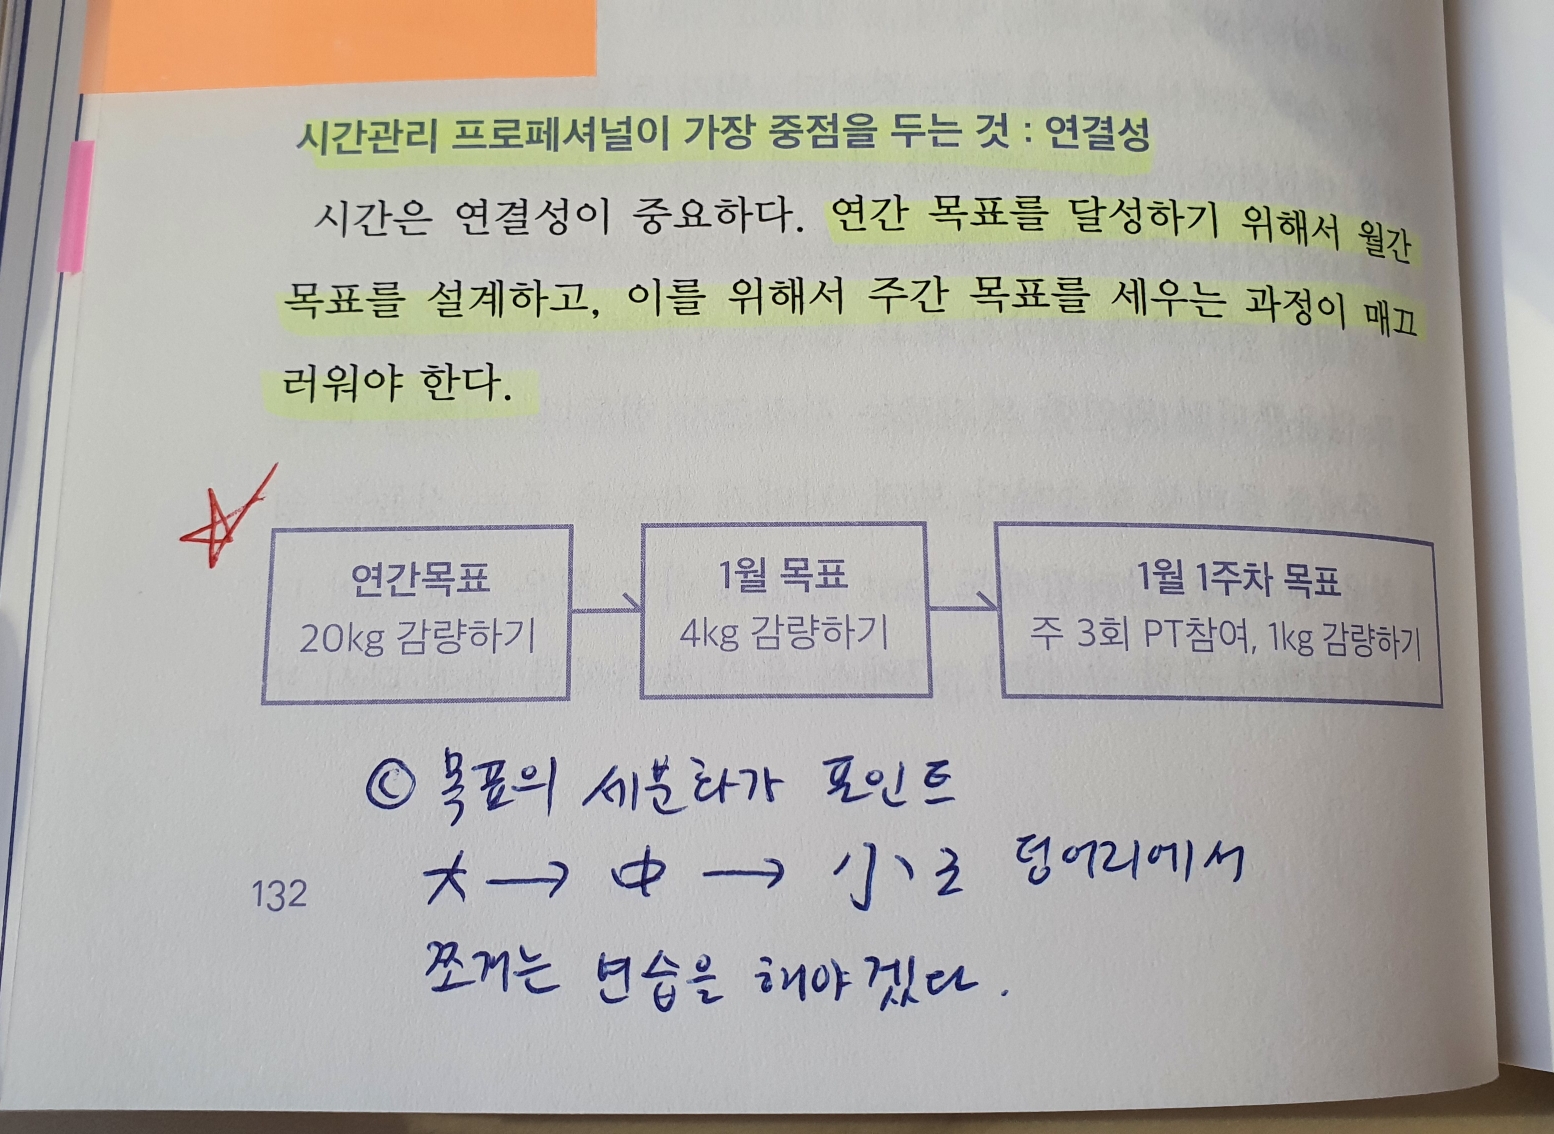 시간관리 프로페셔널이 가장 중점을 두는 것 : 연결성
시간은 연결성이 중요하다. 연간 목표를 달성하기 위해서 월간
목표를 설계하고, 이를 위해서 주간 목표를 세우는 과정이 매끄
러워야 한다.
연간목표
20kg 감량하기
1월 목표
4kg 감량하기
1월 1주차 목표
주 3회 PT참여, 1kg 감량하기
ⓒ 목표의 세분화가 포인트
大 → 中 → 小로 덩어리에서
쪼개는 연습을 해야겠다.
132